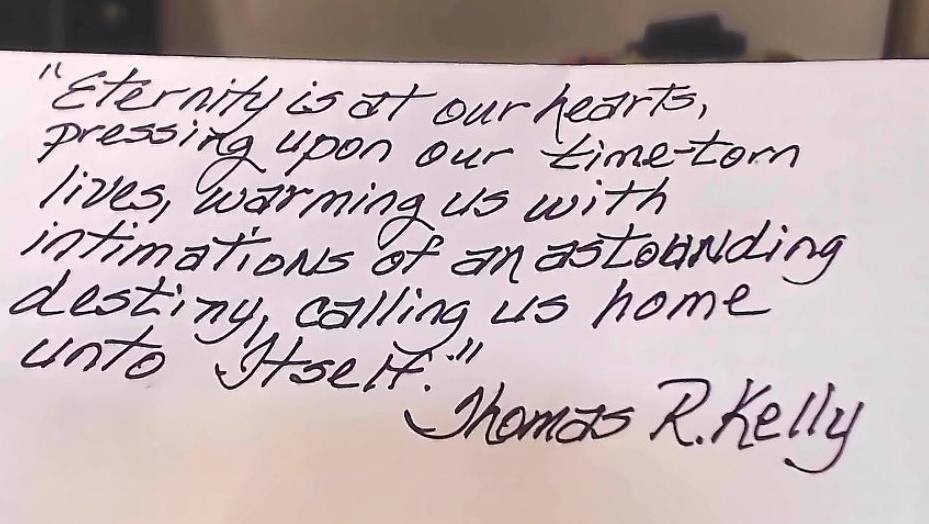 "Eternity is at our hearts,
pressing upon our time-torn
lives, warming us with
intimations of an astounding
destiny, calling us home
unto Itself."
Thomas R. Kelly